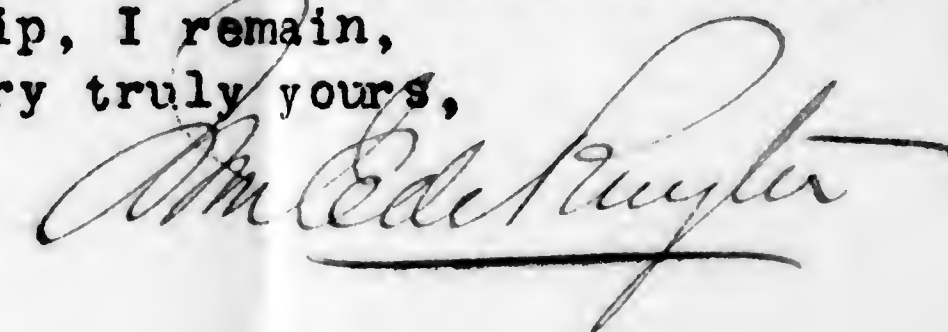 ip, I remain,
ry truly yours,
Wm E de Ruyter